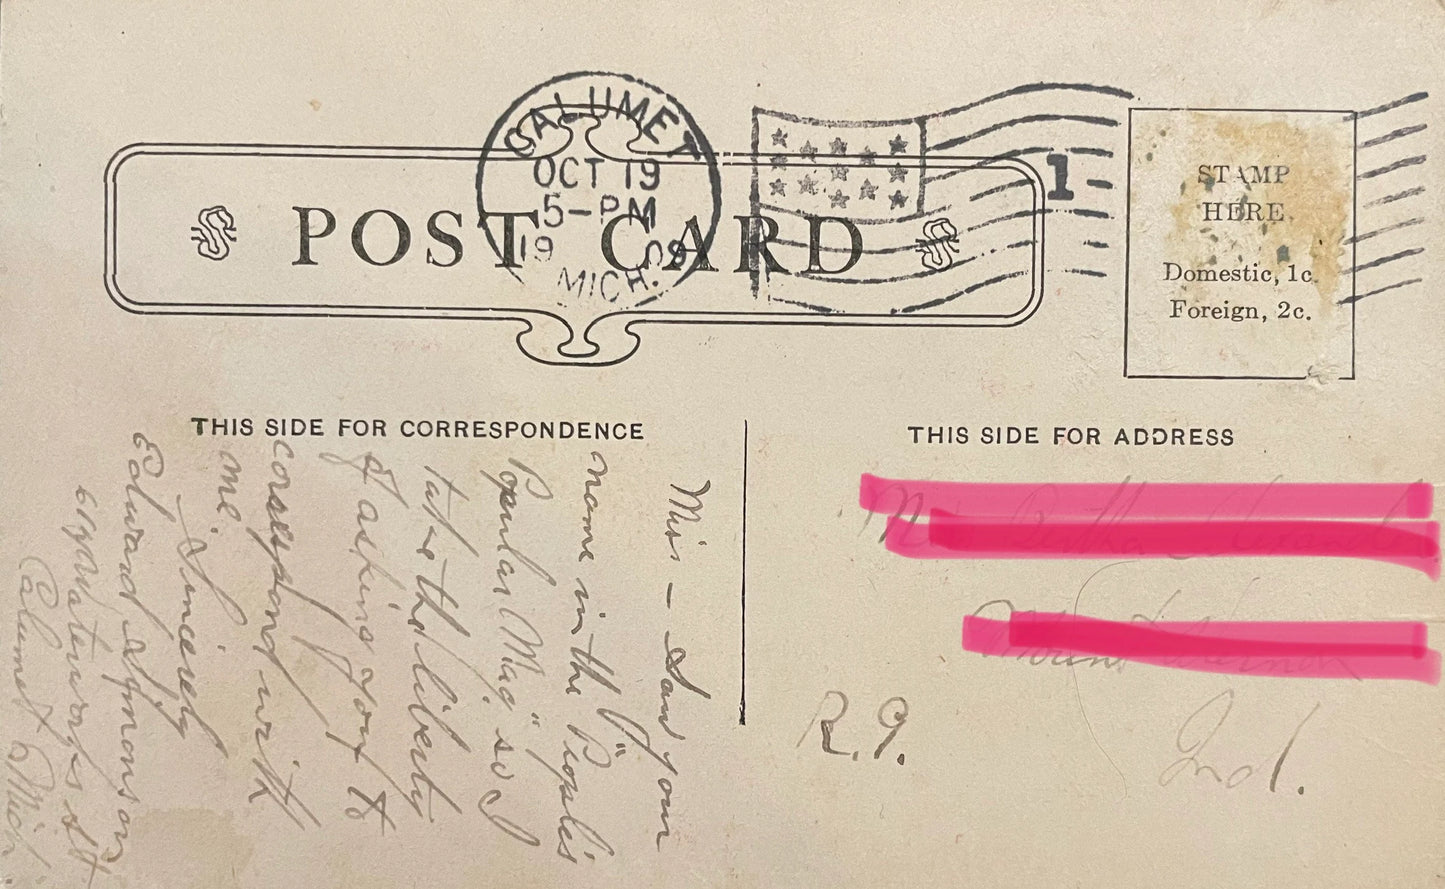 CALUMET
OCT 19
5-PM
19 09
MICH.
1
POST CARD
STAMP
HERE.
Domestic, 1c.
Foreign, 2c.
THIS SIDE FOR CORRESPONDENCE
THIS SIDE FOR ADDRESS
Miss — Saw your
name in the "People's
Popular Mag" so I
take the liberty
of asking you to
correspond with
me.
Sincerely
Edward
Waterworks St
Calumet Mich.
R.9.
Ind.